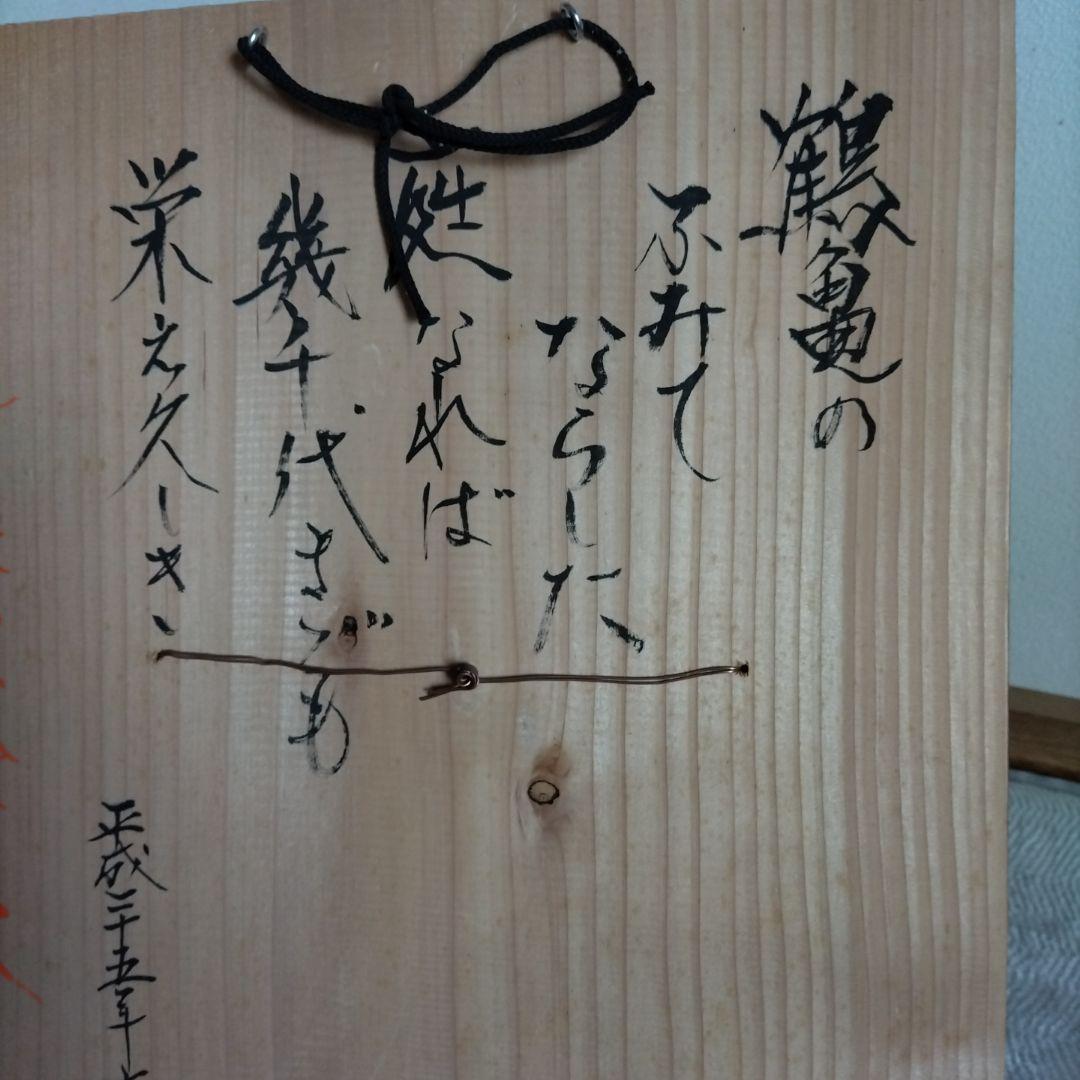 鶴亀の
ふみて
ならした
処なれば
幾千代までも
栄え久しき
平成二十五年